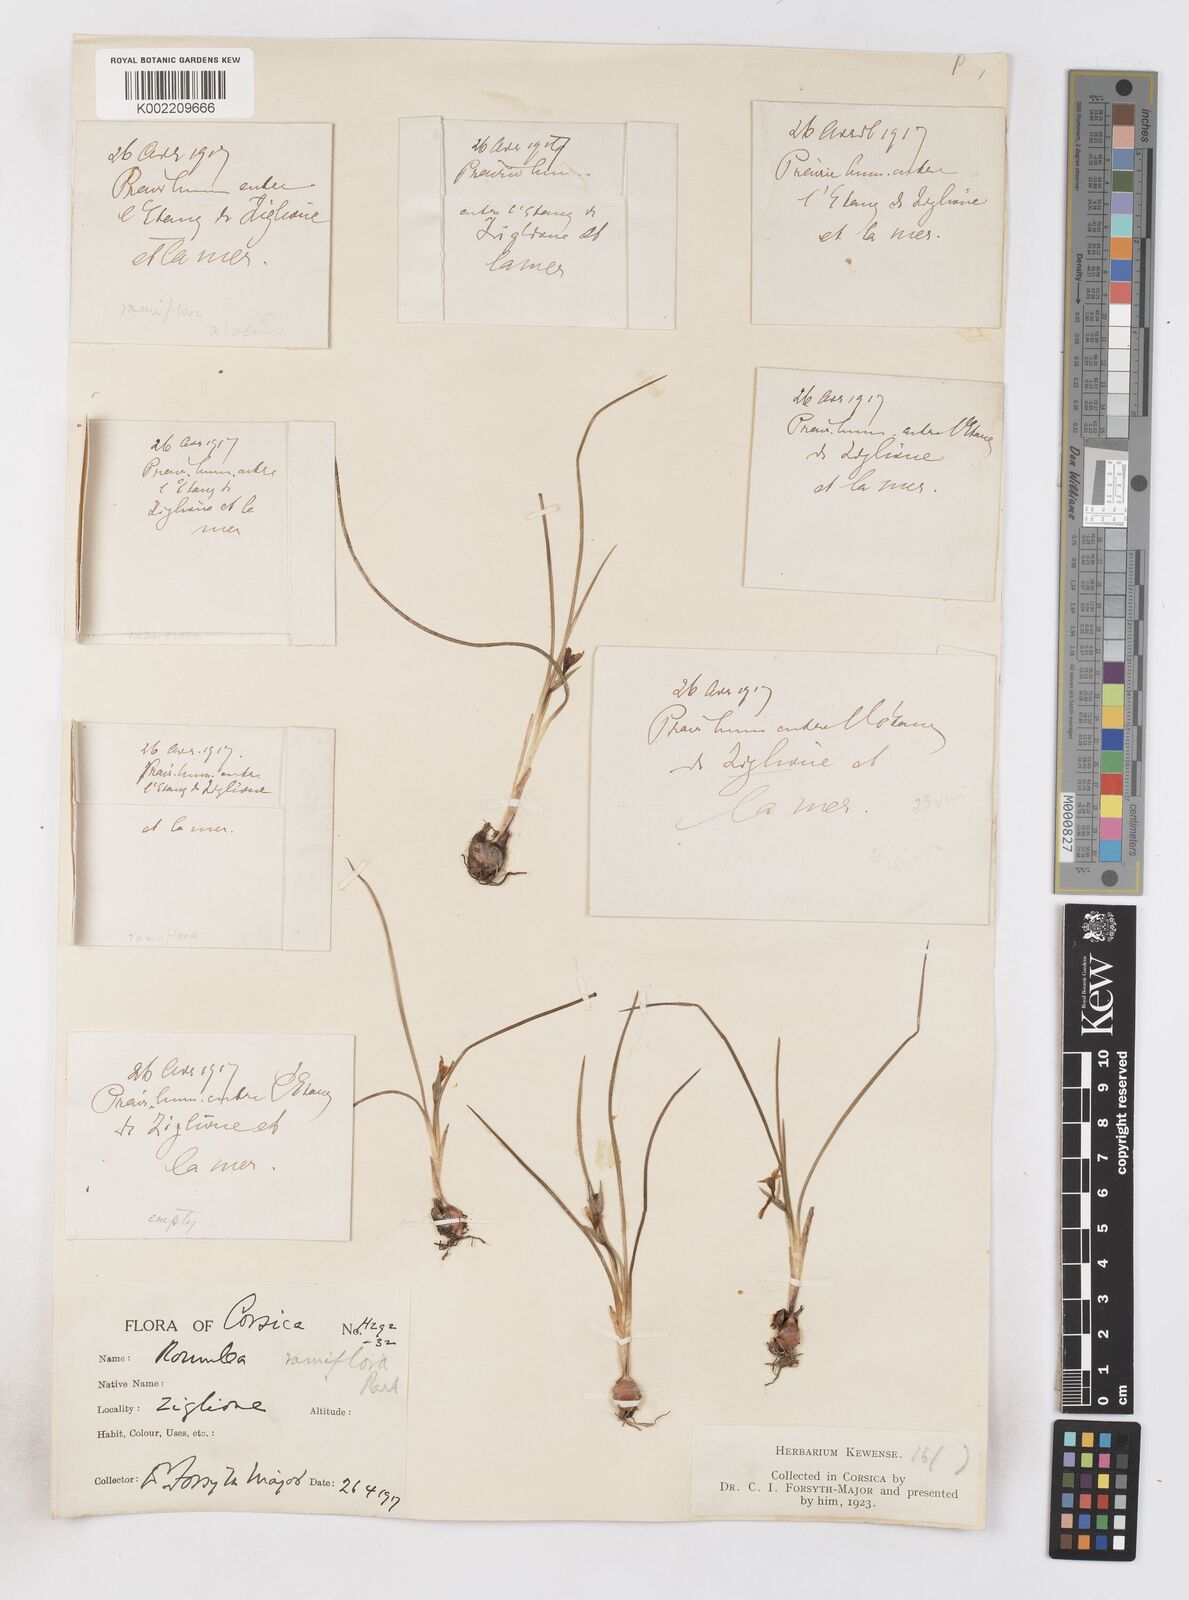 ROYAL BOTANIC GARDENS KEW
K002209666
P 1
26 Avr 1917
Prair hum entre
l'Etang de Ziglione
et la mer.
ramiflora
26 Avr 1917
Prairie hum.
entre l'Etang de
Ziglione et
la mer
26 Avril 1917
Prairie hum. entre
l'Etang de Ziglione
et la mer.
26 Avr 1917
Prair. hum. entre
l'Etang de
Ziglione et la
mer
26 Avr 1917
Prair. hum. entre l'Etang
de Ziglione
et la mer.
26 Avr 1917
Prair hum entre l'étang
de Ziglione et
la mer.
26 Avr. 1917.
Prair. hum. entre
l'Etang de Ziglione
et la mer.
ramiflora
26 Avr 1917
Prair. hum. entre l'Etang
de Ziglione et
la mer.
empty
FLORA OF Corsica No. H292
-32
Name: Romulea ramiflora
Native Name:
Locality: Ziglione Altitude:
Habit, Colour, Uses, etc.:
Collector: Forsyth Major Date: 26 4 1917
HERBARIUM KEWENSE.
Collected in CORSICA by
DR. C. I. FORSYTH-MAJOR and presented
by him, 1923.
inches
Density
Don Williams
M000827
centimetres
Kew
Royal Botanic Gardens
copyright reserved
10 9 8 7 6 5 4 3 2 1 0
cm